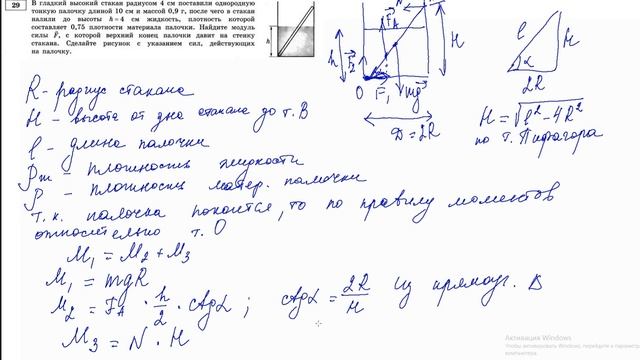 29
В гладкий высокий стакан радиусом 4 см поставили однородную
тонкую палочку длиной 10 см и массой 0,9 г, после чего в стакан
налили до высоты h = 4 см жидкость, плотность которой
составляет 0,75 плотности материала палочки. Найдите модуль
силы F⃗, с которой верхний конец палочки давит на стенку
стакана. Сделайте рисунок с указанием сил, действующих
на палочку.
h
F⃗A
N
h
F⃗2
H
O
F⃗1
mg⃗
D = 2R
l
H
α
2R
H = √(l² - 4R²)
по т. Пифагора
R - радиус стакана
H - высота от дна стакана до т. B
l - длина палочки
ρж - плотность жидкости
ρ - плотность матер. палочки
т.к. палочка покоится, то по правилу моментов
относительно т. O
M₁ = M₂ + M₃
M₁ = mgR
M₂ = FA · h/2 · ctgα ; ctgα = 2R/H из прямоуг. Δ
M₃ = N · H
Активация Windows
Чтобы активировать Windows, перейдите к параметрам
компьютера.